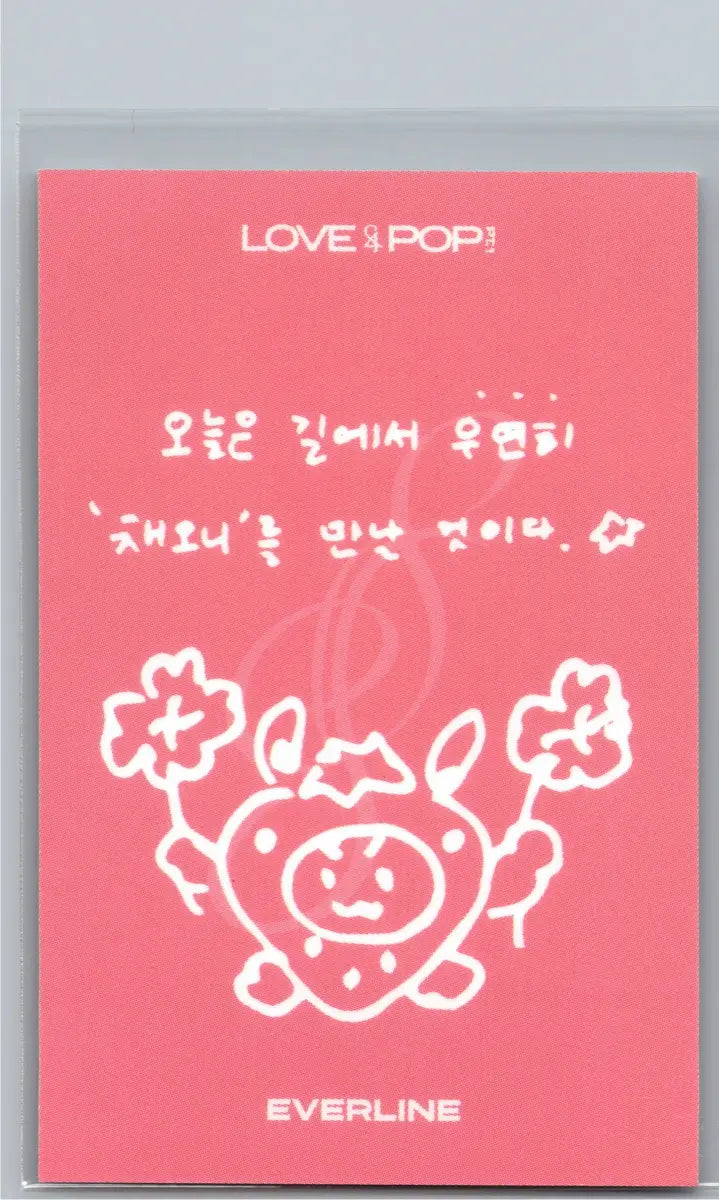 LOVE & POP PT.1
오늘은 길에서 우연히
'채오니'를 만난 것이다. ☆
EVERLINE